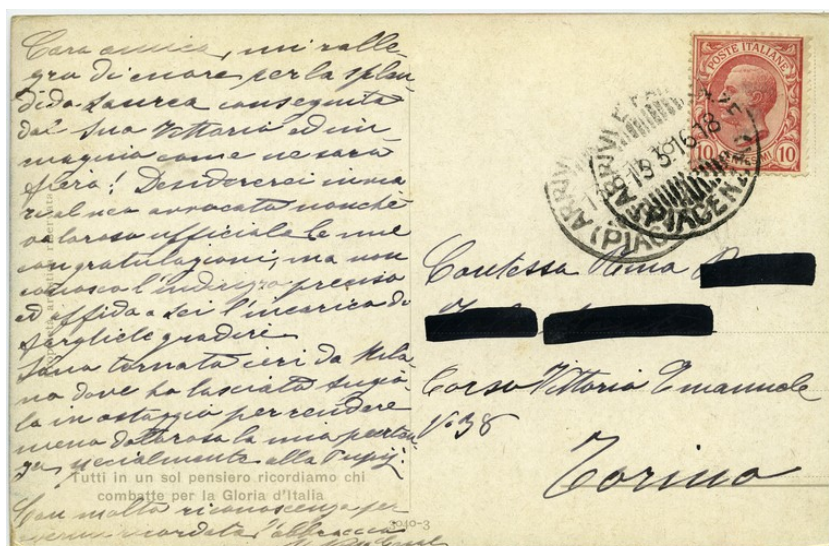 Cara amica, mi ralle-
gro di cuore per la splen-
dida Laurea conseguita
dal suo Vittorio ed im-
magino come ne sarà
fiera! Desidererei invia-
re al neo avvocato nonchè
valoroso ufficiale le mie
congratulazioni, ma non
conosco l'indirizzo preciso
ed affido a Lei l'incarico di
fargliele gradire.
Sono tornata ieri da Mila-
no dove ho lasciato
la in ostaggio per rendere
meno dolorosa la mia parten-
za specialmente alla
Tutti in un sol pensiero ricordiamo chi
combatte per la Gloria d'Italia
Con molta riconoscenza per
ricordata l'abbraccio
3040-3
POSTE ITALIANE
10 10
ARRIVI E
13 3 16 18
(PIACENZA)
Contessa
Corso Vittorio Emanuele
No 38
Torino